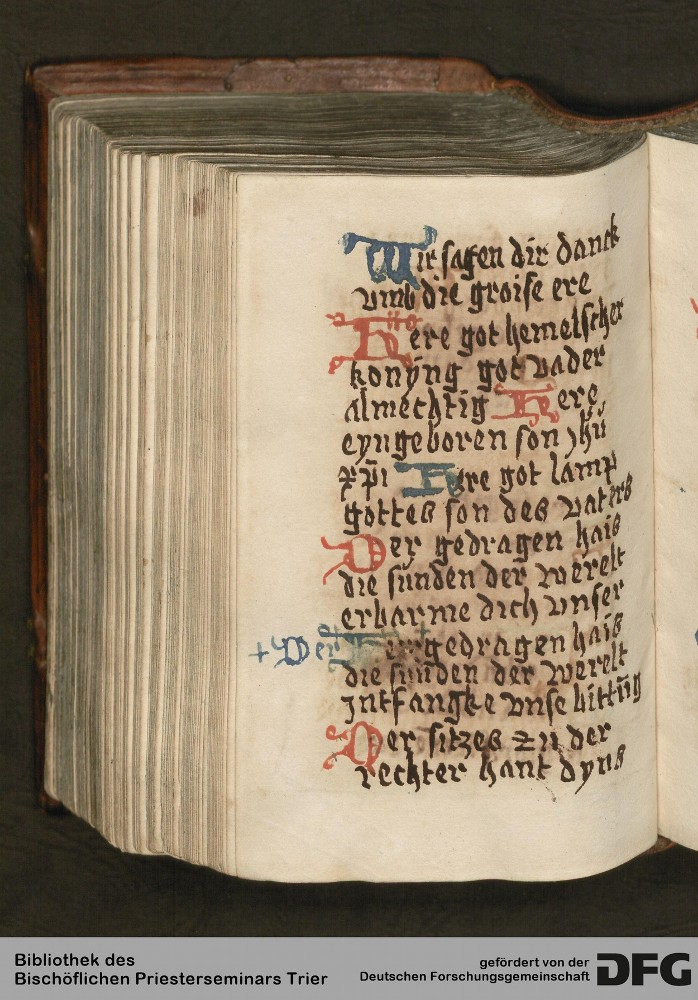 Wir sagen dir danck
vmb die groise ere
Here got hemelscher
konyng got vader
almechtig Here
eyngeboren son jhu
xpi Here got lamp
gottes son des vaters
Der gedragen hais
die sunden der werelt
erbarme dich vnser
+ Der + gedragen hais
die sunden der werelt
Intfangke vnse bittug
Der sitzes zu der
rechter hant dyns
Bibliothek des
Bischöflichen Priesterseminars Trier
gefördert von der
Deutschen Forschungsgemeinschaft DFG